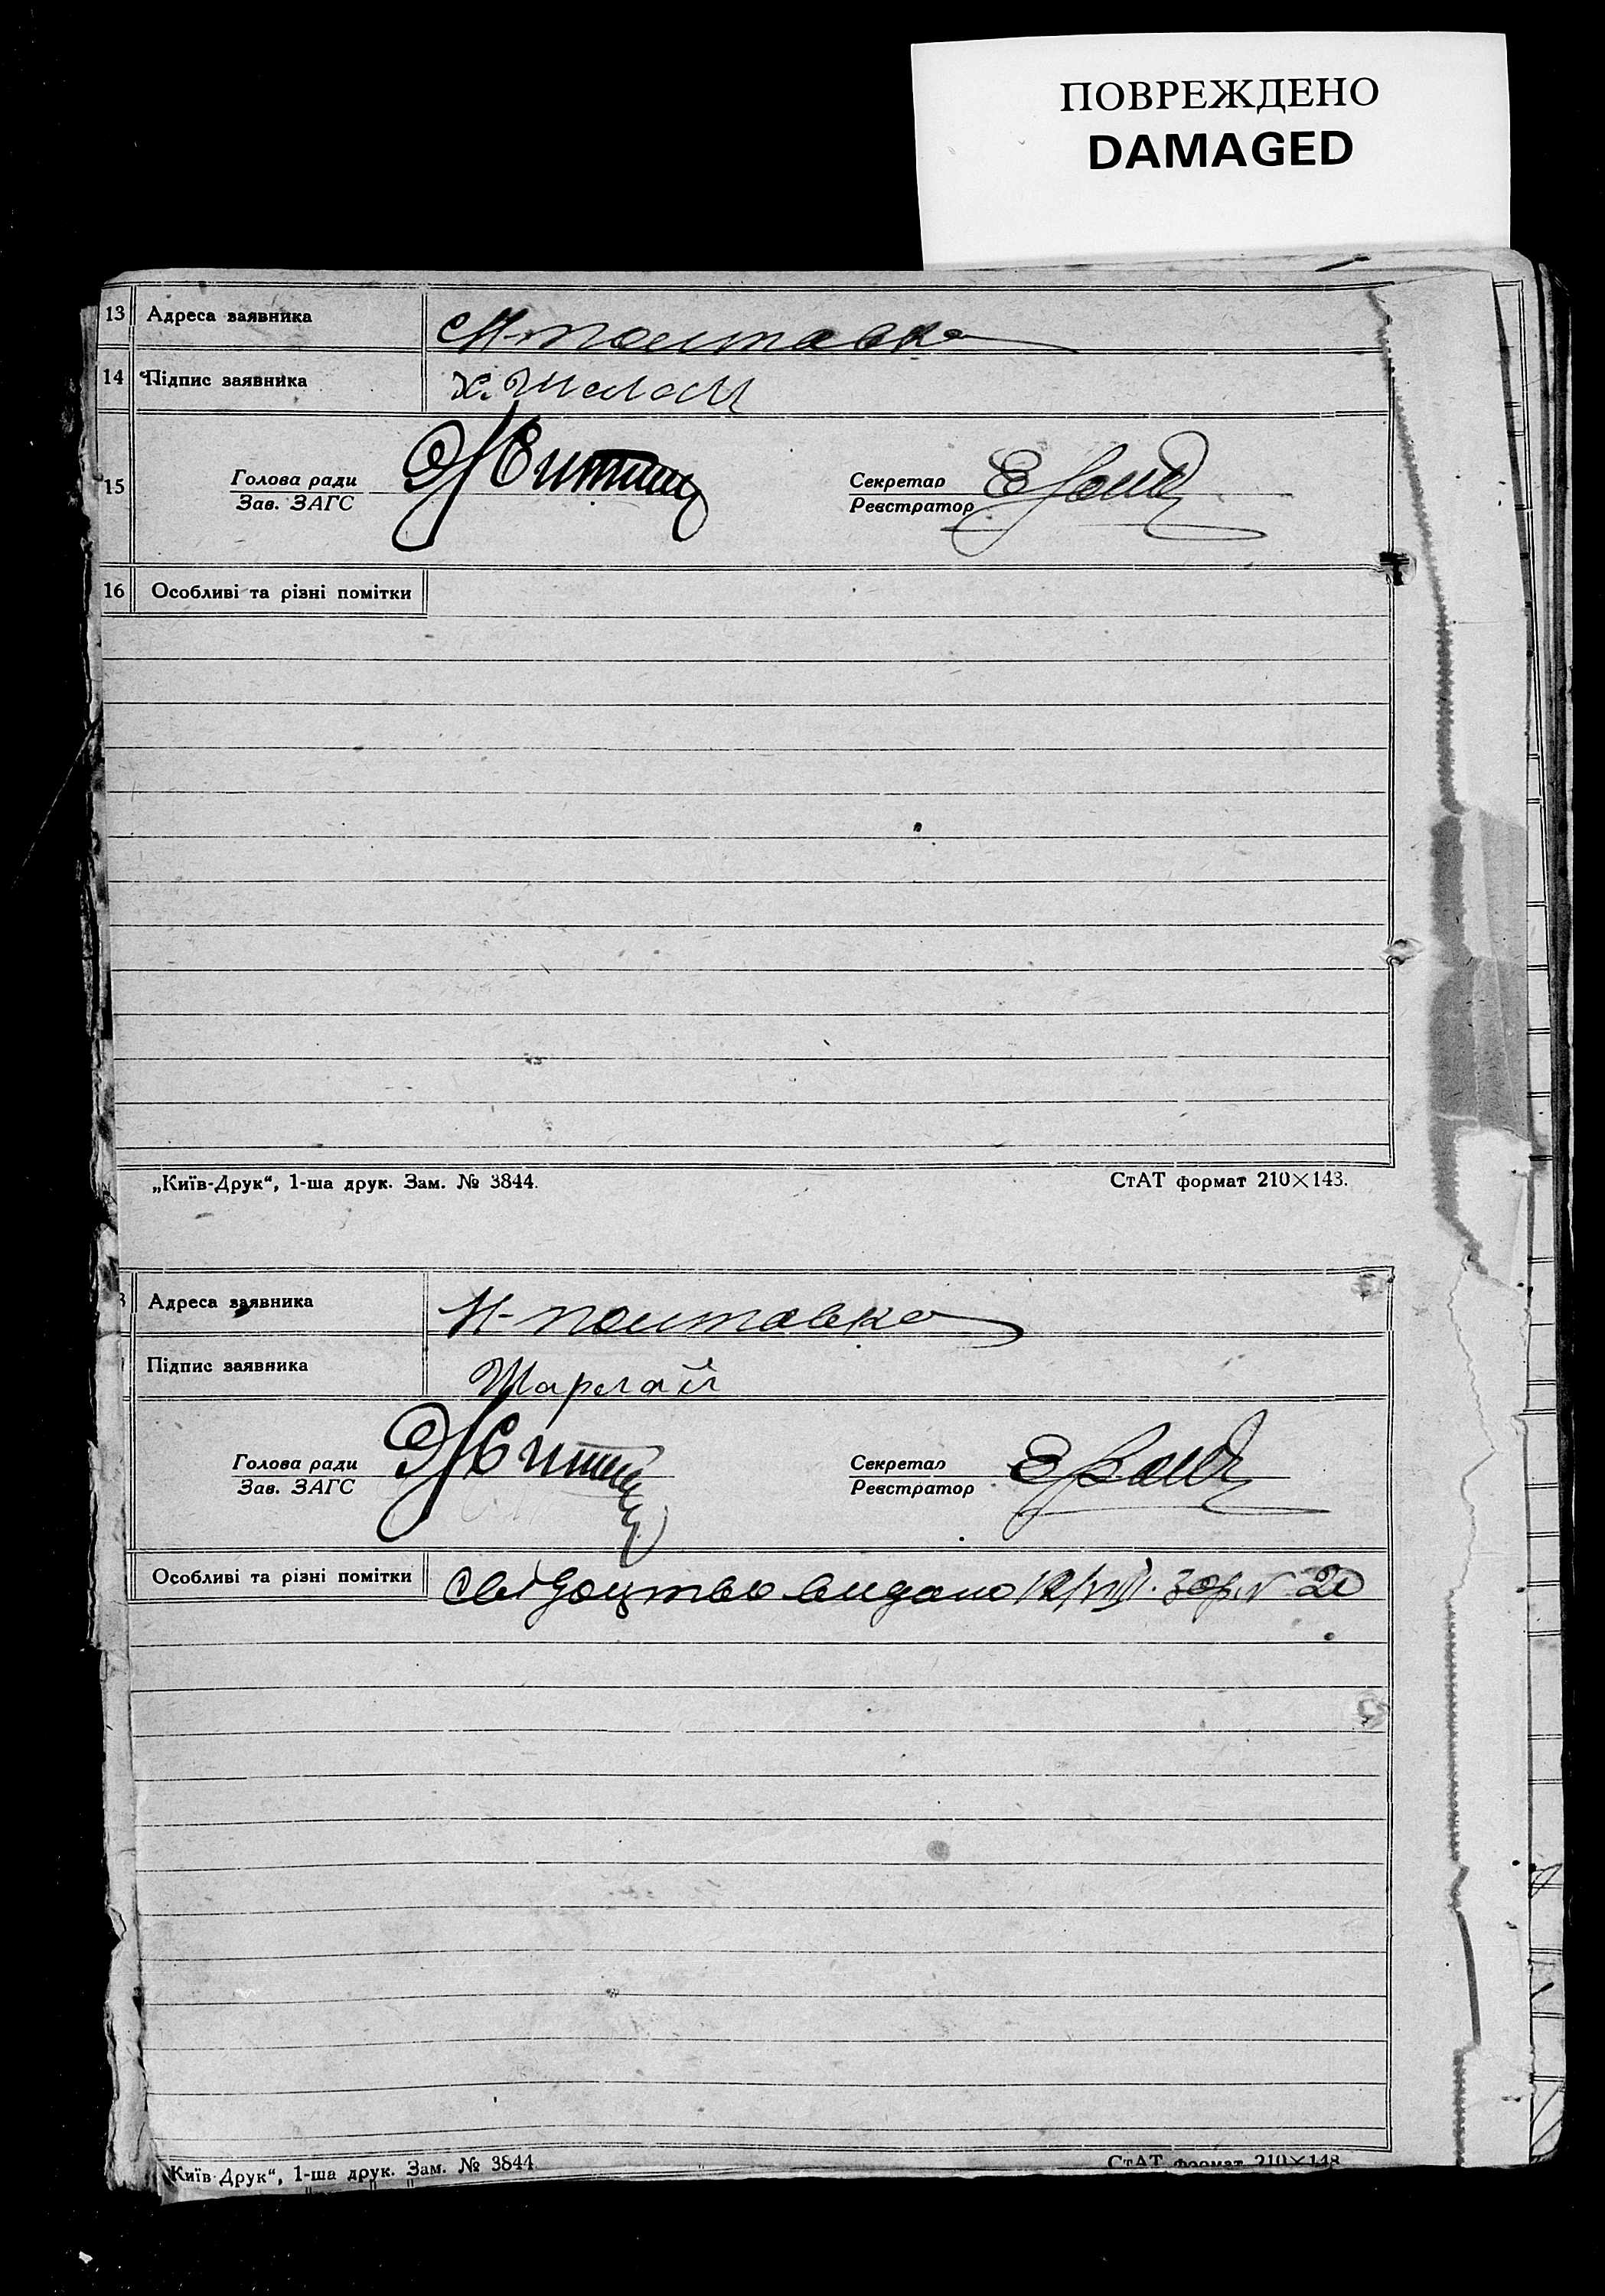 ПОВРЕЖДЕНО
DAMAGED
13 Адреса заявника Н-полтавка
14 Підпис заявника Х. Шелест
15 Голова ради Секретар
Зав. ЗАГС Реєстратор
16 Особливі та різні помітки
„Київ-Друк“, 1-ша друк. Зам. № 3844. СтАТ формат 210×143.
Адреса заявника Н-полтавка
Підпис заявника Шарлай
Голова ради Секретар
Зав. ЗАГС Реєстратор
Особливі та різні помітки свідоцтво видано 12/VIII. 20
Київ-Друк“, 1-ша друк. Зам. № 3844 СтАТ формат 210×148